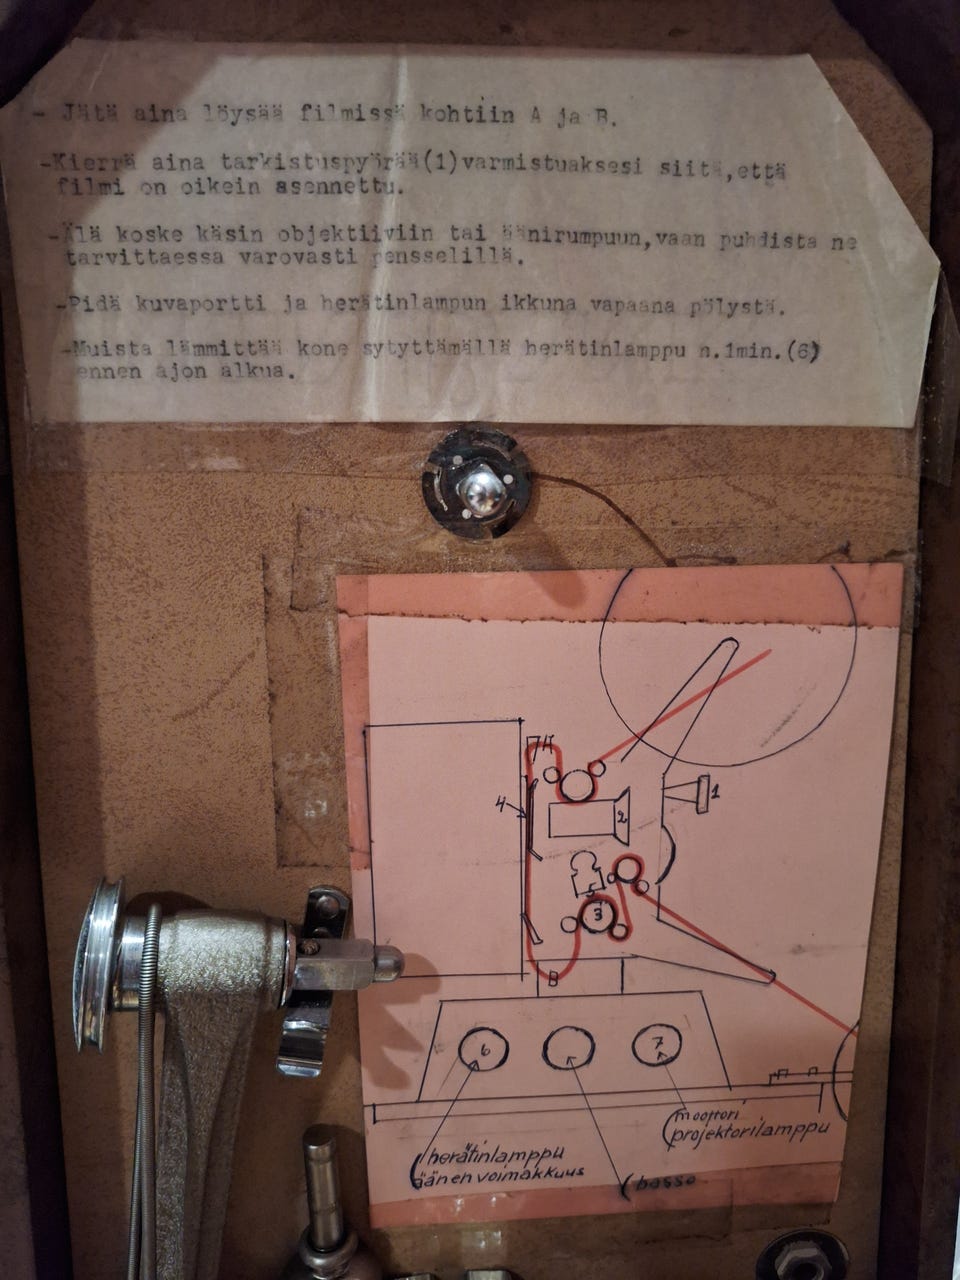 - Jätä aina löysää filmissä kohtiin A ja B.
-Kierrä aina tarkistuspyörää(1)varmistuaksesi siitä,että
filmi on oikein asennettu.
-Älä koske käsin objektiiviin tai äänirumpuun,vaan puhdista ne
tarvittaessa varovasti pensselillä.
-Pidä kuvaportti ja herätinlampun ikkuna vapaana pölystä.
-Muista lämmittää kone sytyttämällä herätinlamppu n.1min.(6)
ennen ajon alkua.
A
1
4
2
5
3
B
6
7
moottori
projektorilamppu
herätinlamppu
äänen voimakkuus
basso